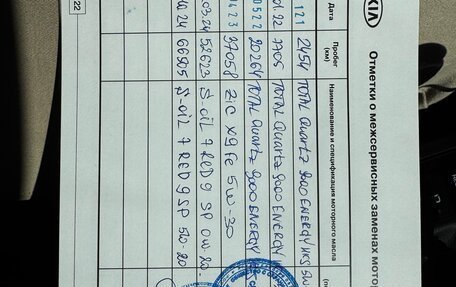 KIA
Отметки о межсервисных заменах
Дата Пробег (км) Наименование и спецификация моторного масла
121 2454 TOTAL Quartz 9000 ENERGY HKS 5W
22 7705 TOTAL Quartz 9000 ENERGY
0522 20264 TOTAL Quartz 9000 ENERGY
0423 37058 ZIC X9 FE 5W-30
03.24 52623 S-OIL 7 RED 9 SP 0W 20
24 66905 S-OIL 7 RED 9 SP 5W-20
22